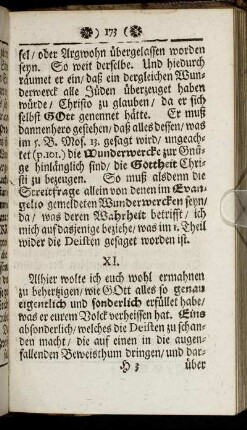 ❀) 173 (❀
fel/ oder Argwohn übergelassen worden
seyn. So weit derselbe. Und hiedurch
räumet er ein/ daß ein dergleichen Wun-
derwerck alle Jüden überzeuget haben
würde/ Christo zu glauben/ da er sich
selbst GOtt genennet hätte. Er muß
dannenhero gestehen/ daß alles dessen/ was
im 5. B. Mos. 13. gesagt wird/ ungeach-
tet (p.101.) die Wunderwercke zur Gnü-
ge hinlänglich sind/ die Gottheit Chri-
sti zu bezeugen. So muß alsdenn die
Streitfrage allein von denen im Evan-
gelio gemeldeten Wunderwercken seyn/
da/ was deren Wahrheit betrifft/ ich
mich auf dasjenige beziehe/ was im 1. Theil
wider die Deisten gesaget worden ist.
XI.
Alhier wolte ich euch wohl ermahnen
zu behertzigen/ wie GOtt alles so genau
eigentlich und sonderlich erfüllet habe/
was er eurem Volck verheissen hat. Eins
absonderlich/ welches die Deisten zu schan-
den macht/ die auf einen in die augen-
fallenden Beweisthum dringen/ und dar-
H 3 über